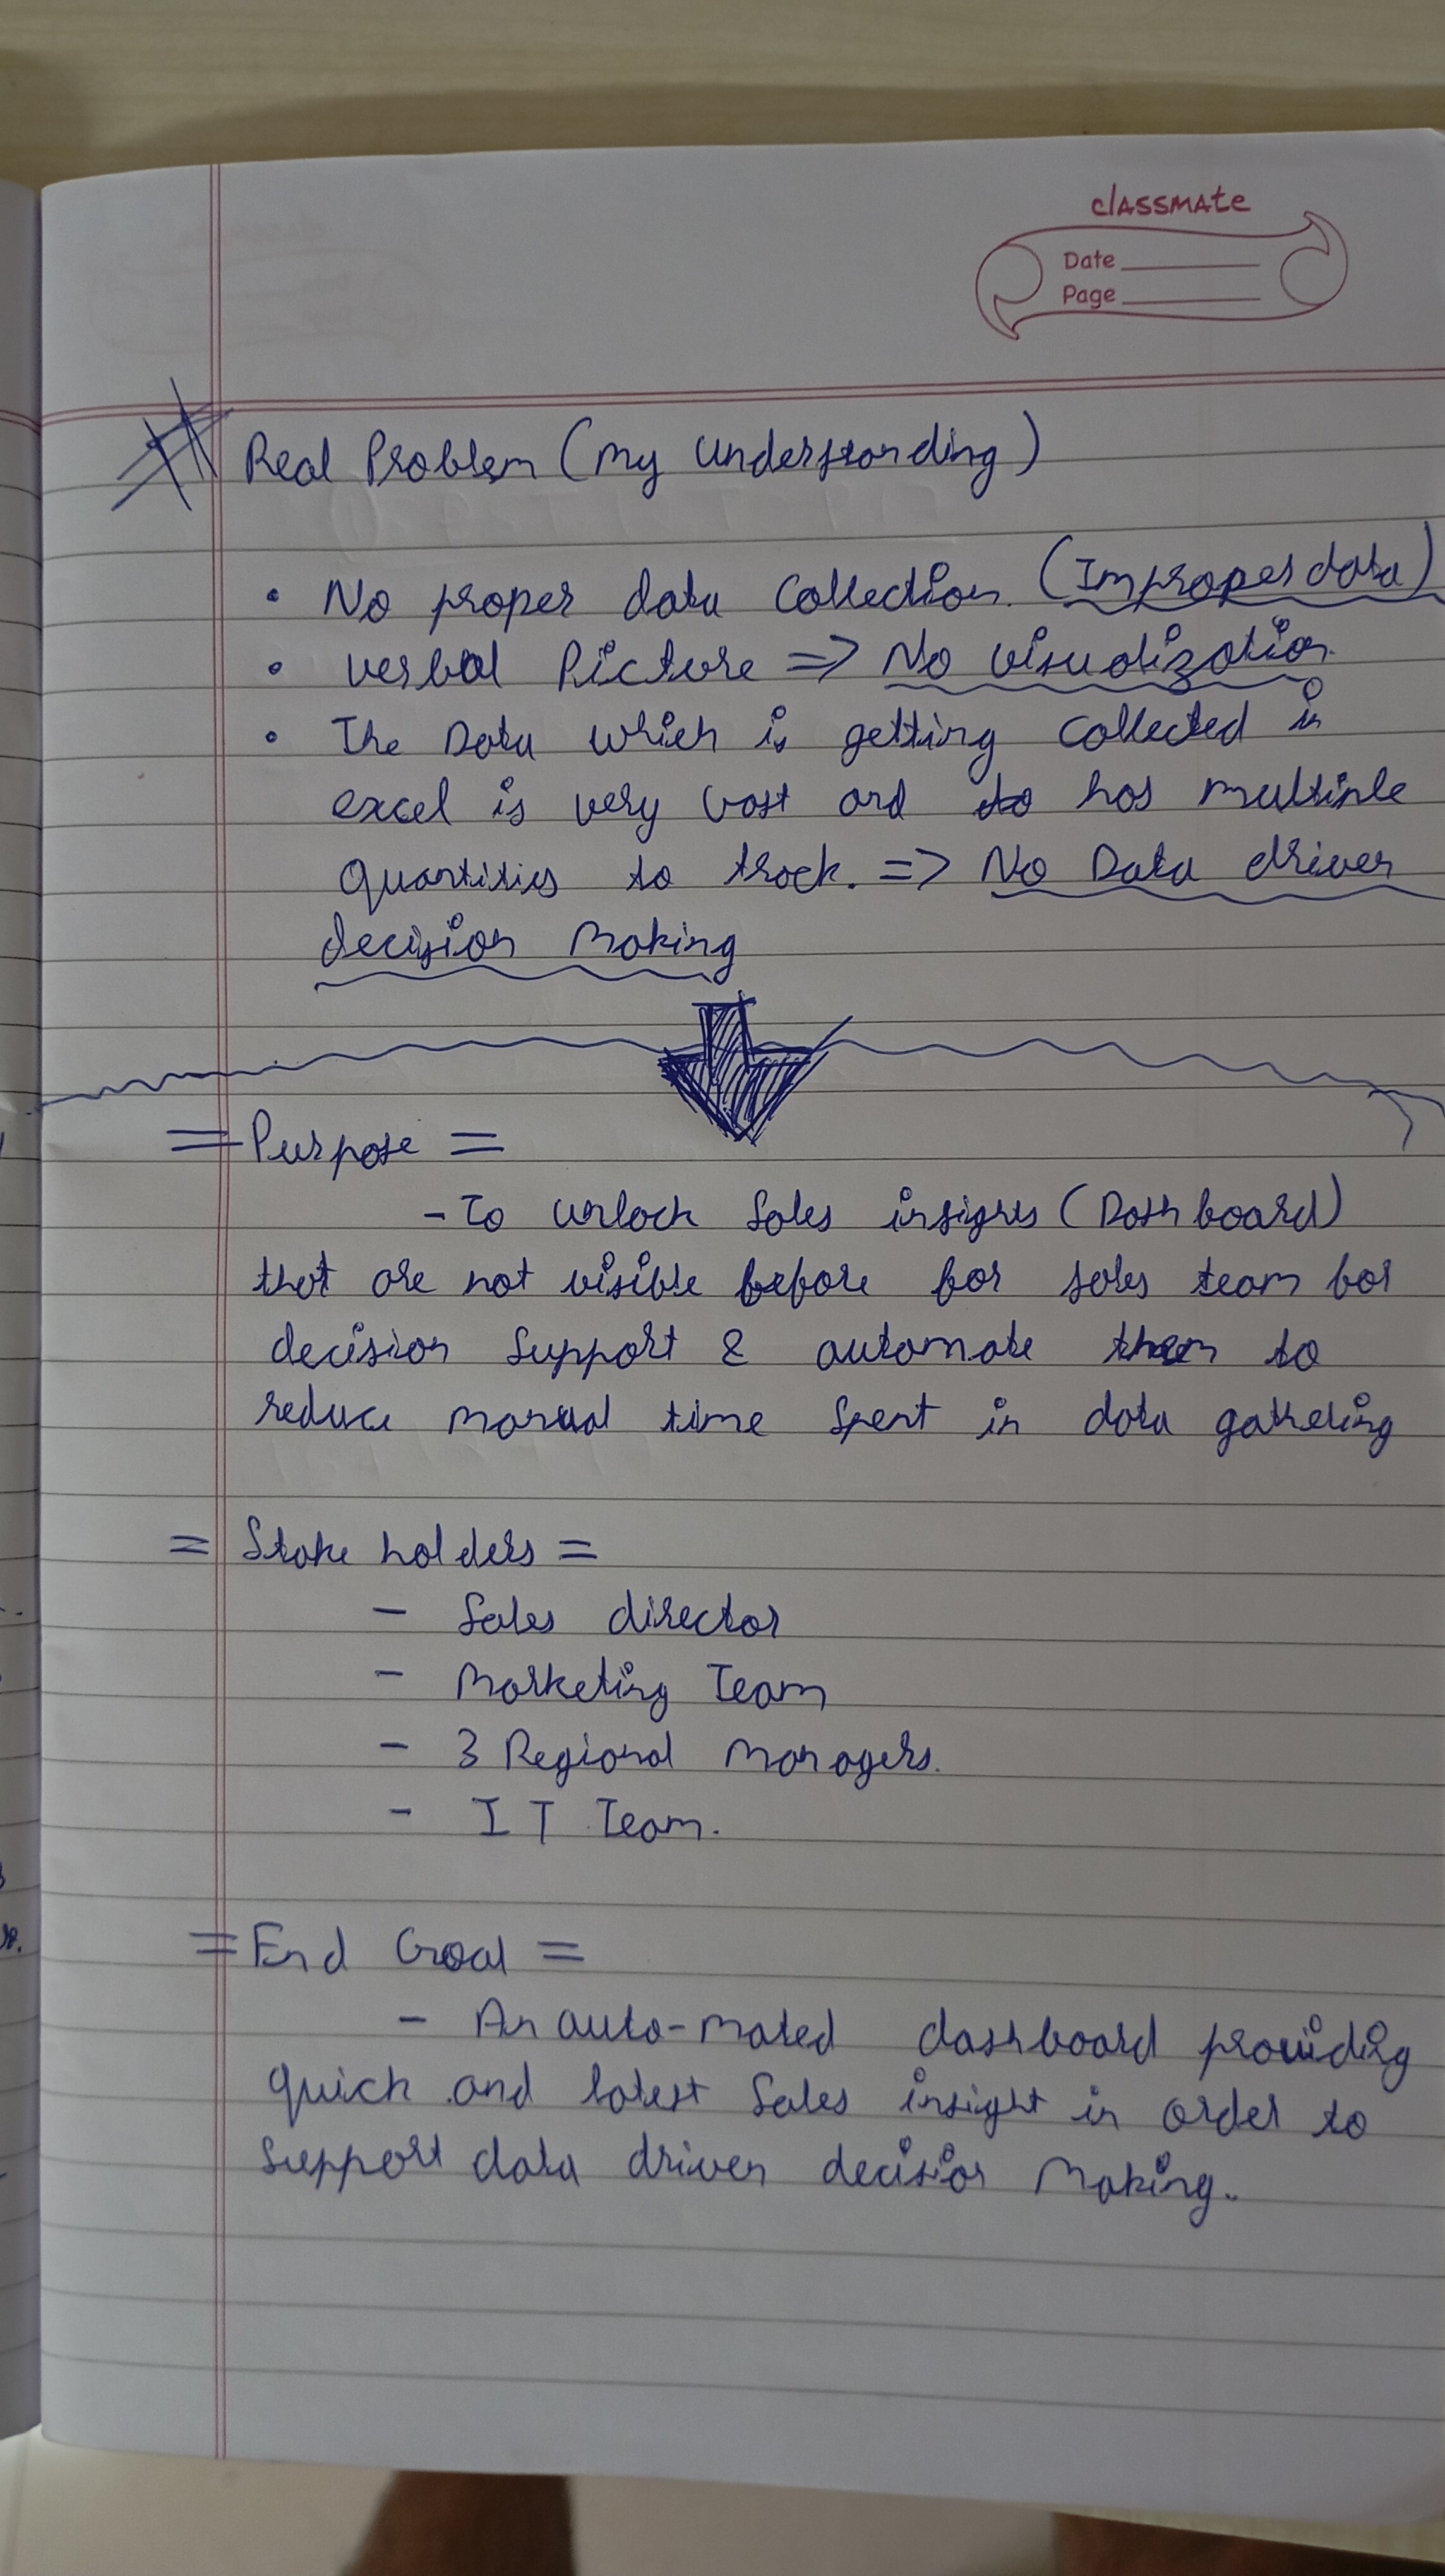 classmate
Date
Page
Real Problem (My Understanding)
• No proper data Collection. (Improper data)
• verbal Picture => No visualization
• The Data which is getting collected in
excel is very vast and has multiple
quantities to track. => No Data driven
decision Making
= Purpose =
- To unlock Sales insights (Dashboard)
that are not visible before for sales team for
decision Support & automate them to
reduce manual time Spent in data gathering
= Stake holders =
- Sales director
- Marketing Team
- 3 Regional Managers.
- IT Team.
= End Goal =
- An auto-mated dashboard providing
quick and latest Sales insight in order to
support data driven decision Making.